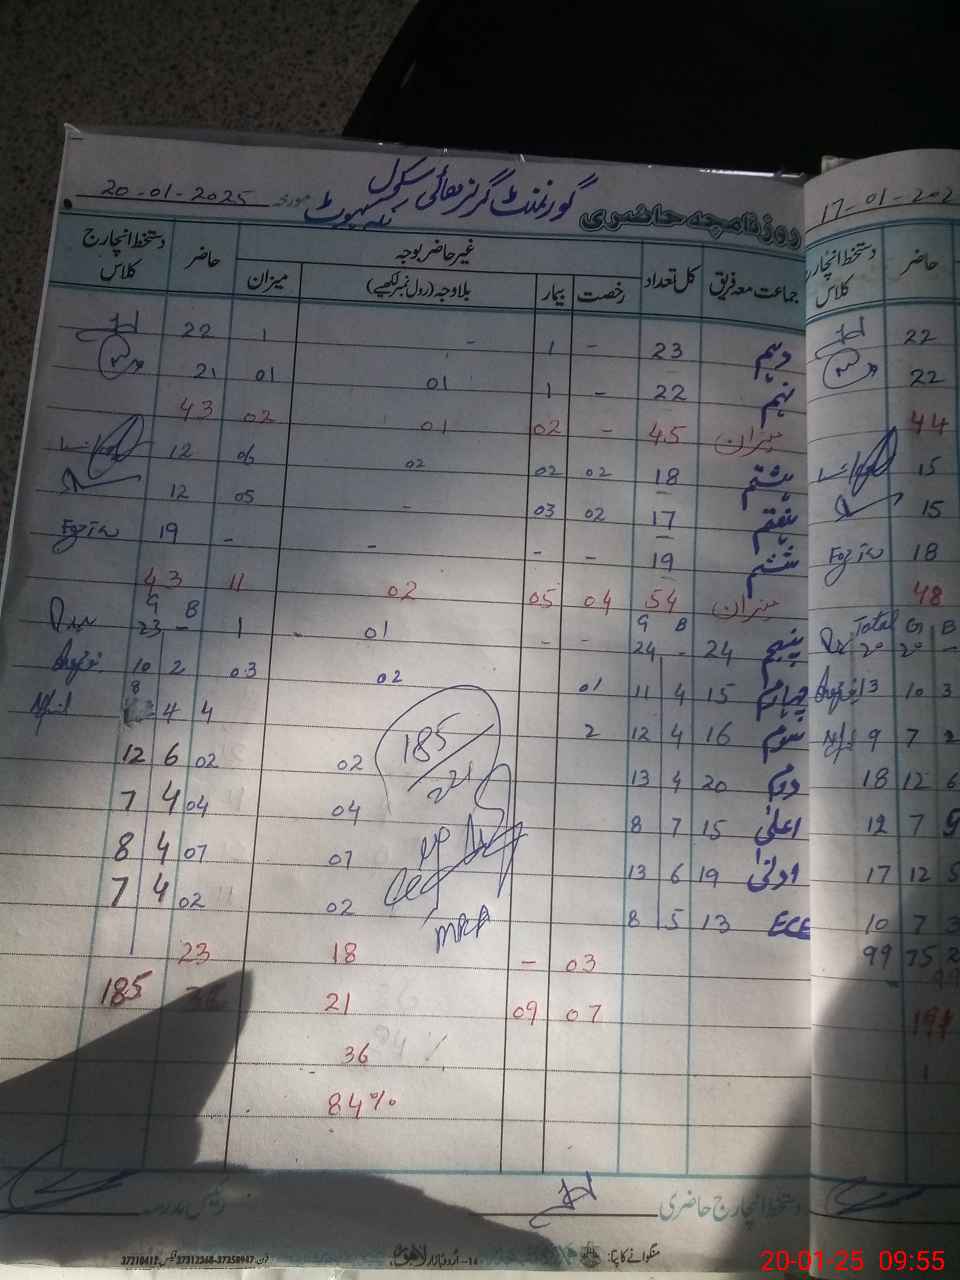 روزنامچہ حاضری گورنمنٹ گرلز ہائی سکول مورخہ 20-01-2025
جماعت معہ فریق کل تعداد غیر حاضر بوجہ حاضر دستخط انچارج کلاس
رخصت بیمار بلاوجہ (رول نمبر لکھیے) میزان
دہم 23 - 1 - 1 22
نہم 22 - 1 01 01 21
میزان 45 - 02 01 02 43
ہشتم 18 02 02 02 06 12
ہفتم 17 02 03 - 05 12
ششم 19 - - - - 19 Fozia
میزان 54 04 05 02 11 43
G B G B
پنجم 24 - 24 - - 01 1 23 -
چہارم 15 4 11 01 02 03 10 2
سوم 16 4 12 2 8 4 4
دوم 20 4 13 02 02 12 6
اعلیٰ 15 7 8 04 04 7 4
ادنیٰ 19 6 13 07 07 8 4
ECE 13 5 8 02 02 7 4
185
21
MRA
03 - 18 23
07 09 21 185
36
84%
دستخط انچارج حاضری رئیس مدرسہ
منگوانے کا پتا: 14-اُردو بازار لاہور فون: 37312368-37358947 فیکس: 37210412
17-01-202
حاضر دستخط انچارج کلاس
22
22
44
15
15
18 Fozia
48
Total G B
20 20 -
13 10 3
9 7 2
18 12 6
12 7 5
17 12 5
10 7 3
99 75 2
191
1
20-01-25 09:55